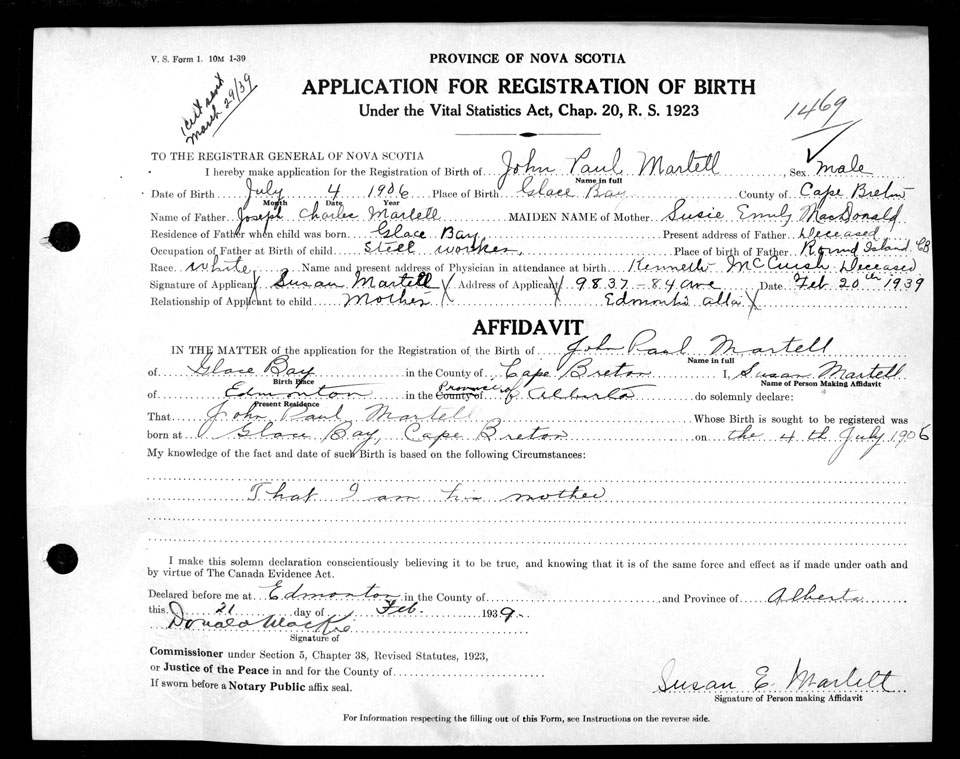 V. S. Form 1. 10M 1-39
PROVINCE OF NOVA SCOTIA
APPLICATION FOR REGISTRATION OF BIRTH
Under the Vital Statistics Act, Chap. 20, R. S. 1923
March 29/39
1469
TO THE REGISTRAR GENERAL OF NOVA SCOTIA
I hereby make application for the Registration of Birth of John Paul Martell, Sex male
Name in full
Date of Birth July 4 1906 Place of Birth Glace Bay County of Cape Breton
Month Date Year
Name of Father Joseph Charles Martell MAIDEN NAME of Mother Susie Emily MacDonald
Residence of Father when child was born Glace Bay Present address of Father Deceased
Occupation of Father at Birth of child Steel worker, Place of Father Round Island CB
Race White Name and present address of Physician in attendance at birth Kenneth McCuish Deceased
Signature of Applicant Susan Martell Address of Applicant 9837-84 ave Date Feb 20th 1939
Relationship of Applicant to child Mother Edmonton alta
AFFIDAVIT
IN THE MATTER of the application for the Registration of the Birth of John Paul Martell
Name in full
of Glace Bay in the County of Cape Breton I, Susan Martell
Birth Place Name of Person Making Affidavit
of Edmonton in the County of Province of Alberta do solemnly declare:
Present Residence
That John Paul Martell Whose Birth is sought to be registered was
born at Glace Bay, Cape Breton on the 4th July 1906
My knowledge of the fact and date of such Birth is based on the following Circumstances:
That I am his mother
I make this solemn declaration conscientiously believing it to be true, and knowing that it is of the same force and effect as if made under oath and
by virtue of The Canada Evidence Act.
Declared before me at Edmonton in the County of and Province of Alberta
this 21 day of Feb. 1939.
Donald MacKie
Signature of
Commissioner under Section 5, Chapter 38, Revised Statutes, 1923,
or Justice of the Peace in and for the County of
If sworn before a Notary Public affix seal.
Susan E. Martell
Signature of Person making Affidavit
For Information respecting the filling out of this Form, see Instructions on the reverse side.